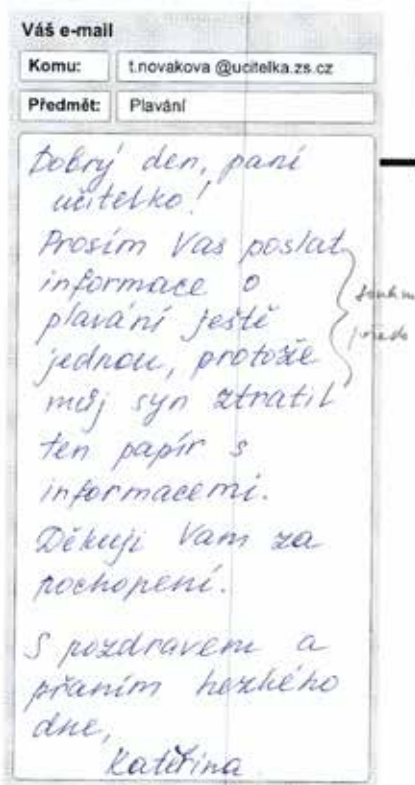 Váš e-mail
Komu: t.novakova @ucitelka.zs.cz
Předmět: Plavání
Dobrý den, paní
učitelko!
Prosím Vas poslat
informace o
plavání ještě
jednou, protože
můj syn ztratil
ten papír s
informacemi.
Děkuji Vam za
pochopení.
S pozdravem a
přáním hezkého
dne,
Kateřina